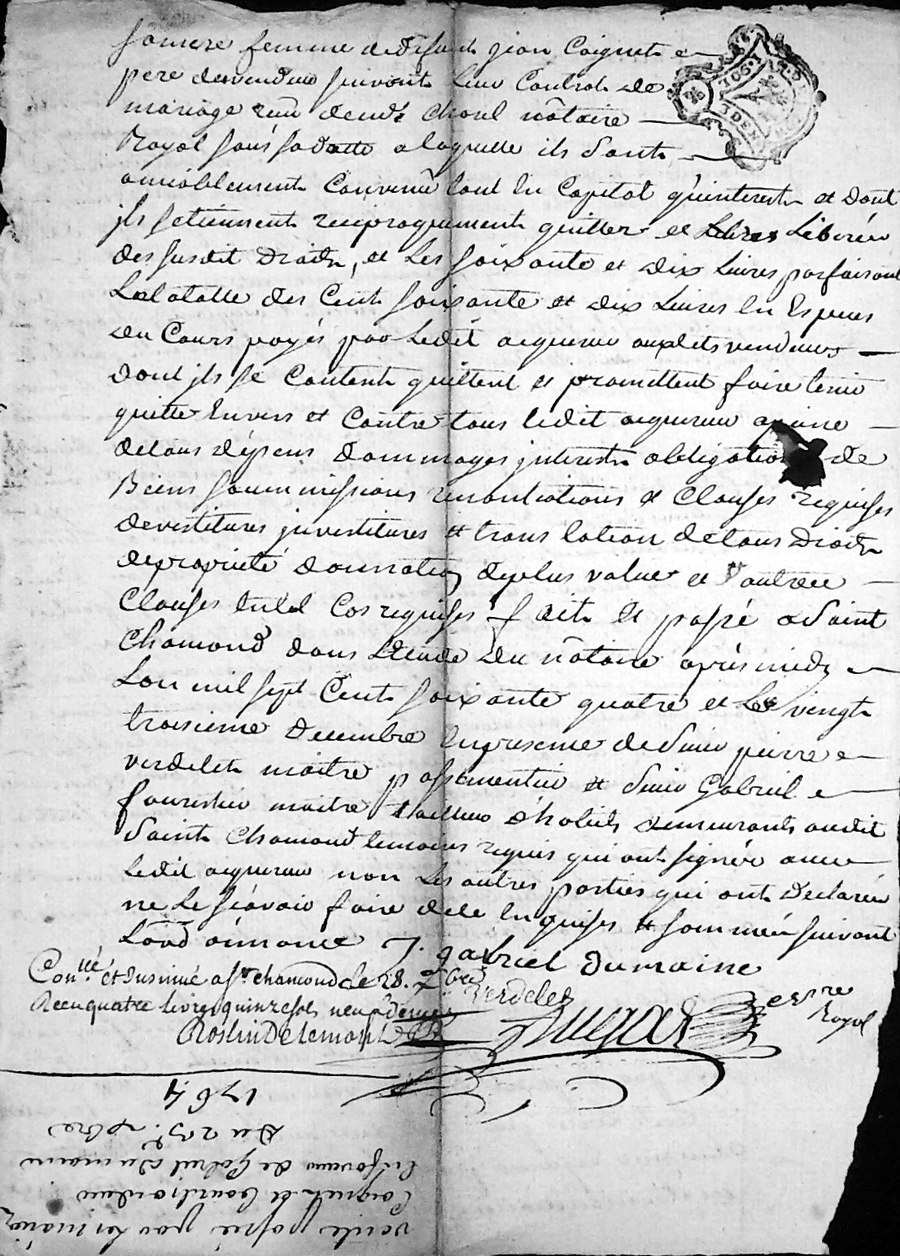 samere femme dedefunt jean Coignet
pere devendeur suivant Leur Contrat de
mariage reçu de me Chorel nôtaire
Royal sous sadatte a laquelle ils Sont
amiablement Convenu tant En Capital q'uinterest et dont
jls setiennent reciproquement quitter et Libérée
dessusdit Droits, et Les soixante et dix Livres parfaisant
Lalatotte des Cent soixante et dix Livres En Especes
du Cours payés par Ledit aquereur auxdits vendeurs
dont jls se Contente quittent et promettent faire tenir
quitte Envers et Contre tous ledit aquereur apeine
detous dépens dommages jnterests obligation de
Biens soummissions renontiations et Clauses requises
devestitures jnvestitures et translation detous Droits
depropriété donnation deplus value et autres
Clauses Ental Cas requises fait et passé aSaint
Chamond dans L'étude du nôtaire aprésmidy
Lan mil sept Cent soixante quatre et Le vingt
troisieme Decembre Enpresence deSieur pierre
verdelet maitre passementier et Sieur Gabriel
fourestier maitre tailleur d'habits demeurants audit
Saint Chamont temoins requis qui ont signée avec
Ledit aquereur non Les autres parties qui ont Déclarée
ne Le sçavoir faire dece Enquises et sommée suivant
Lord'onnance J. gabriel dumaine
Con.llé et Insinué a St chamond le 28. Xbre
Verdelet
Recu quatre livres quinze sols neuf deniers
Royal
1764
Du 23. xbre
Enfaveur de Gabriel Dumaine
Coignet et
vente passé par les mariez